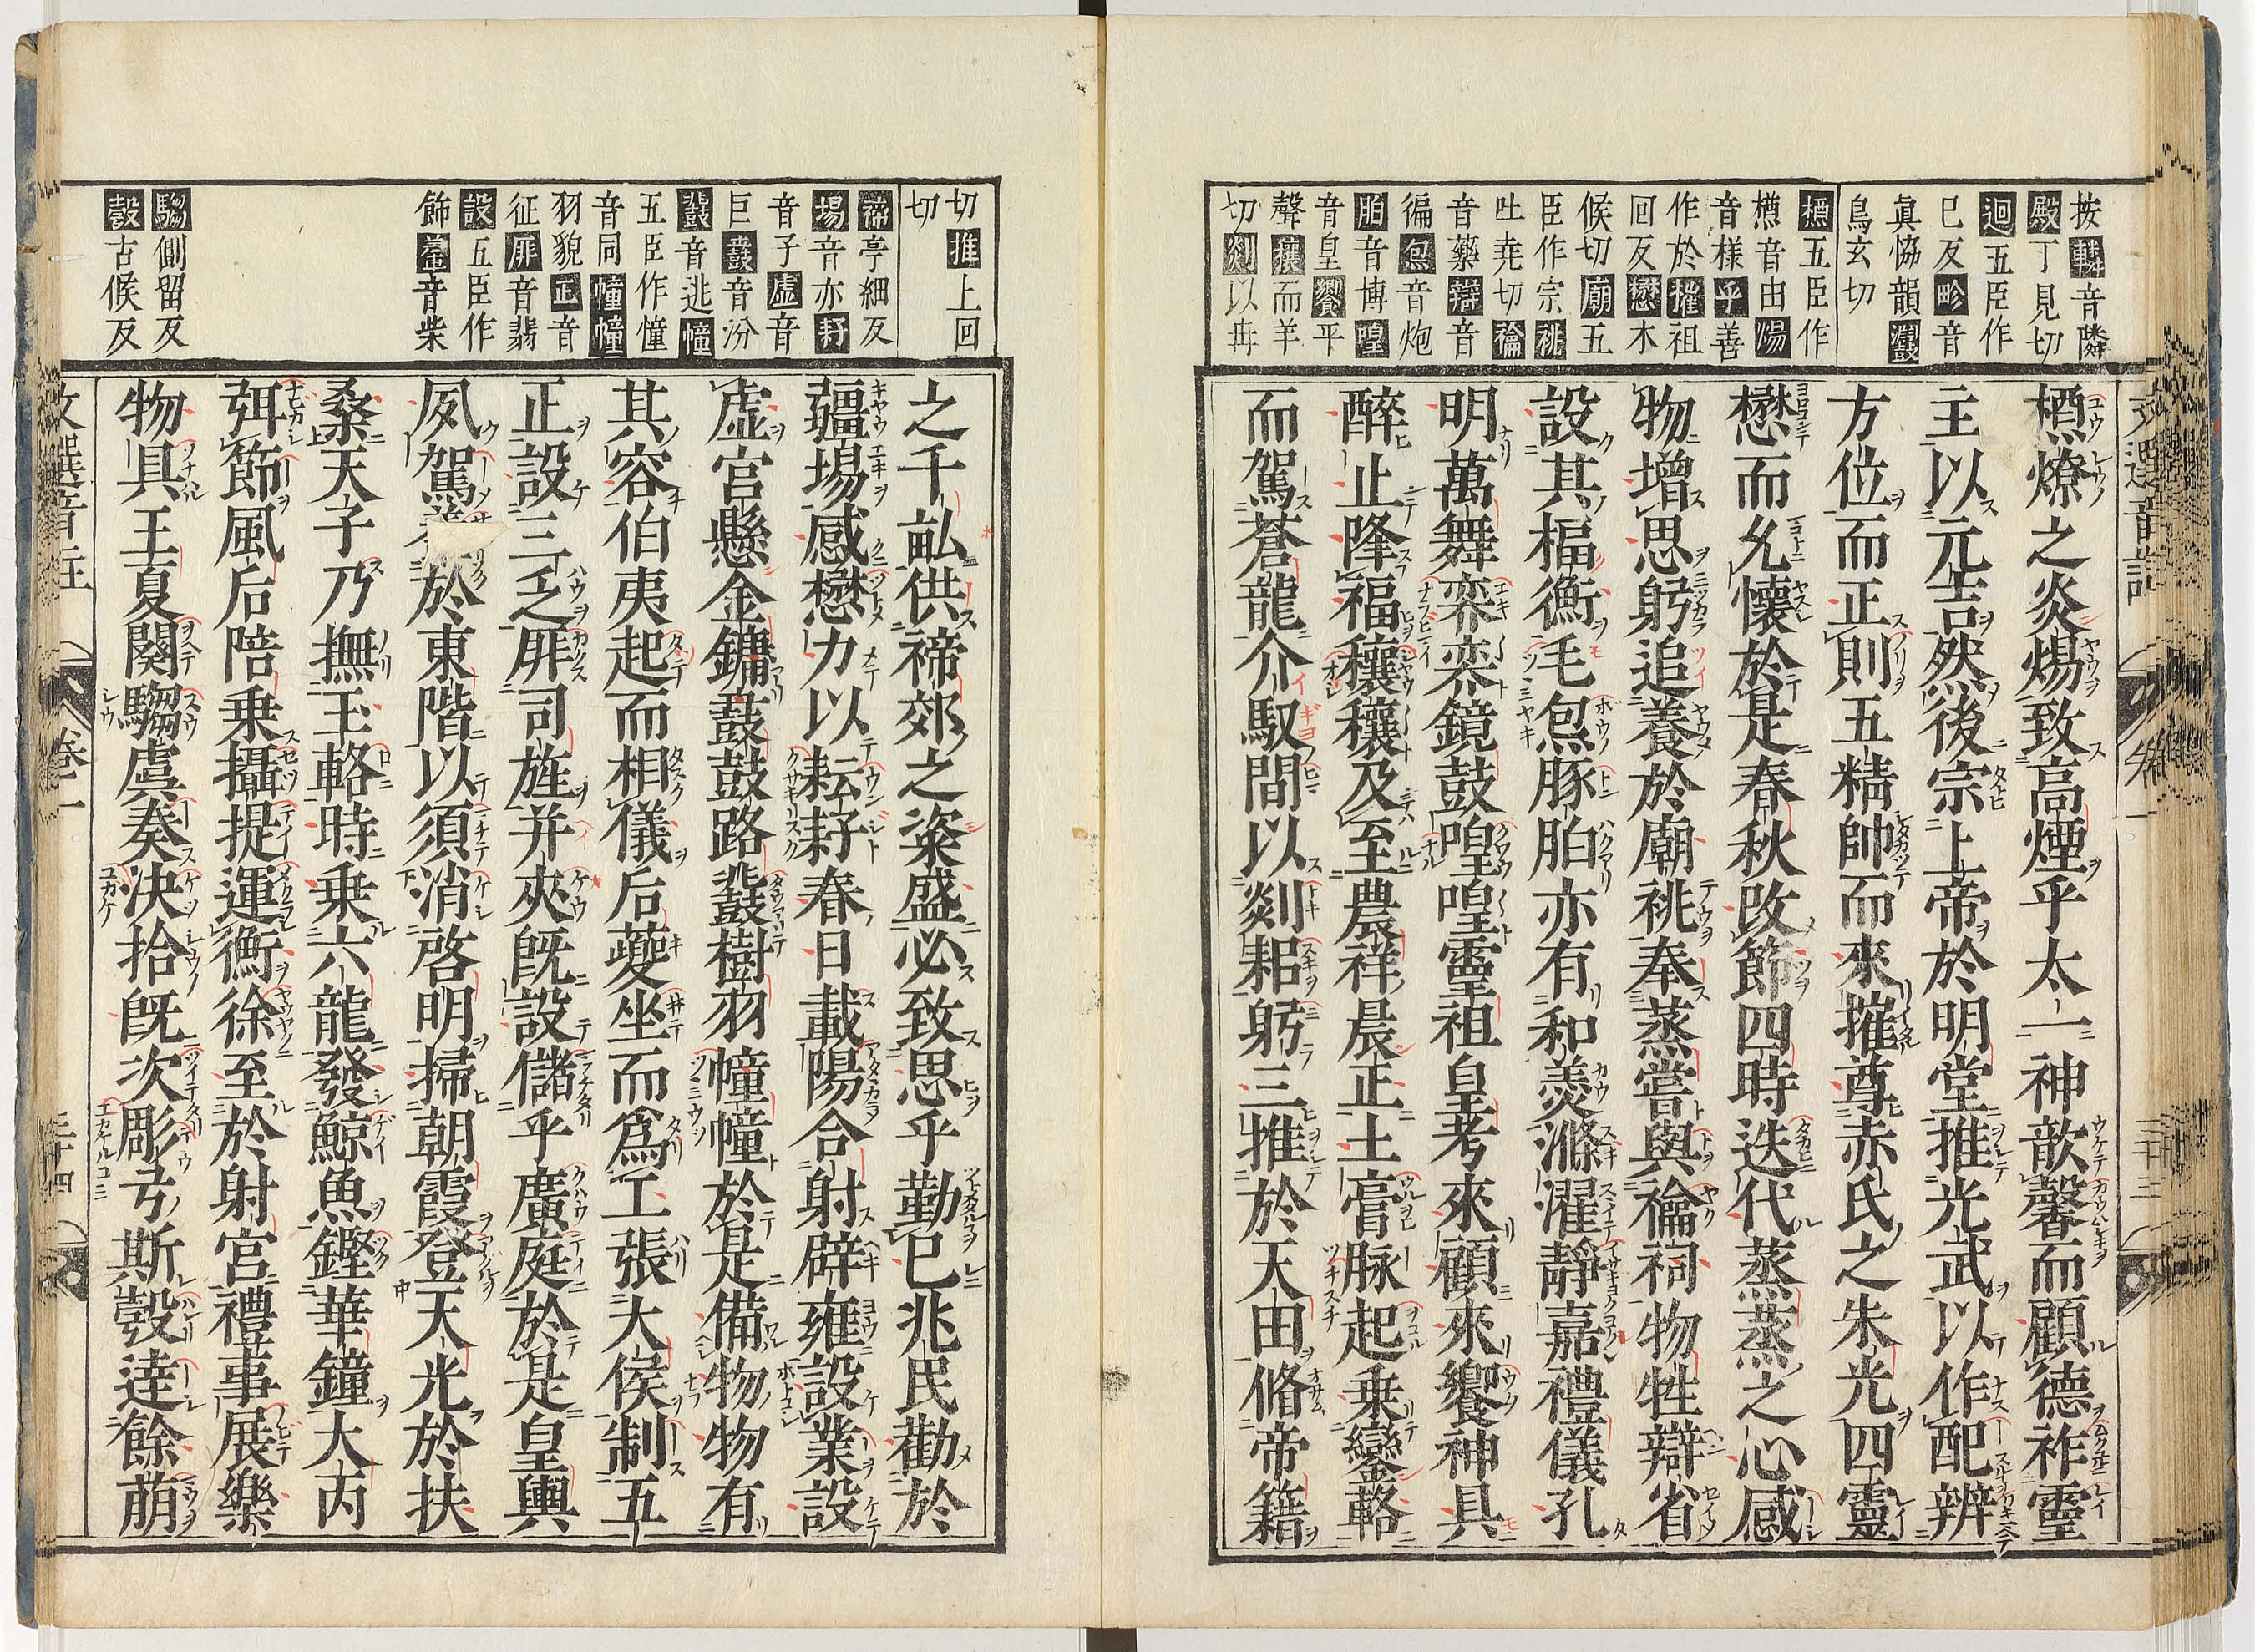 按轔音隣
殿丁見切
迴五臣作
巳反畛音
眞協韻鼝
烏玄切
槱五臣作
槱音由煬
音樣乎善
作於摧祖
回反懋木
候切廟五
臣作宗祧
吐尭切禴
音藥辯音
徧炰音炮
胉音博喤
音皇饗平
聲穰而羊
切剡以冉
槱燎之炎煬致高煙乎太一神歆馨而顧德祚靈
主以元吉然後宗上帝於明堂推光武以作配辨
方位而正則五精帥而來摧尊赤氏之朱光四靈
懋而允懷於是春秋改節四時迭代蒸蒸之心感
物增思躬追養於廟祧奉蒸嘗與禴祠物牲辯省
設其楅衡毛炰豚胉亦有和羹滌濯靜嘉禮儀孔
明萬舞奕奕鏡鼓喤喤靈祖皇考來顧來饗神具
醉止降福穰穰及至農祥晨正土膏脉起乗鑾輅
而駕蒼龍介馭間以剡耜躬三推於天田脩帝籍
切推上回
切
禘亭細反
場音亦耔
音子虡音
巨鼖音汾
鼗音逃幢
五臣作憧
音同幢幢
羽貌正音
征厞音翡
設五臣作
飾音柴
騶側留反
彀古候反
之千畝供禘郊之粢盛必致思乎勤己兆民勸於
疆場感懋力以耘耔春日載陽合射辟雍設業設
虡宮懸金鏞鼖鼓路鼗樹羽幢幢於是備物物有
其容伯夷起而相儀后夔坐而爲工張大侯制五
正設三乏厞司旌并夾既設儲乎廣庭於是皇輿
夙駕於東階以須消啓明掃朝霞登天光於扶
桑天子乃撫玉輅時乗六龍發鯨魚鏗華鐘大丙
弭節風后陪乗攝提運衡徐至於射宮禮事展樂
物具王夏闋騶虞奏決拾既次彫弓斯彀達餘萌
文選音註 卷一 三十四